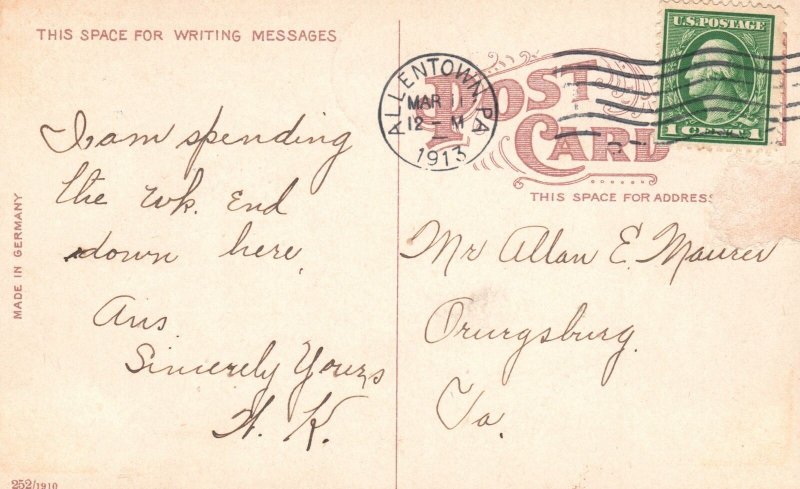 THIS SPACE FOR WRITING MESSAGES
I am spending
the wk. End
down here.
Ans.
Sincerely Yours
H. K.
MADE IN GERMANY
252/1910
POST CARD
THIS SPACE FOR ADDRESS
ALLENTOWN, PA
MAR 11
12 - M
1913
U.S. POSTAGE
1 CENT 1
Mr Allan E. Maurer
Orwigsburg.
Pa.